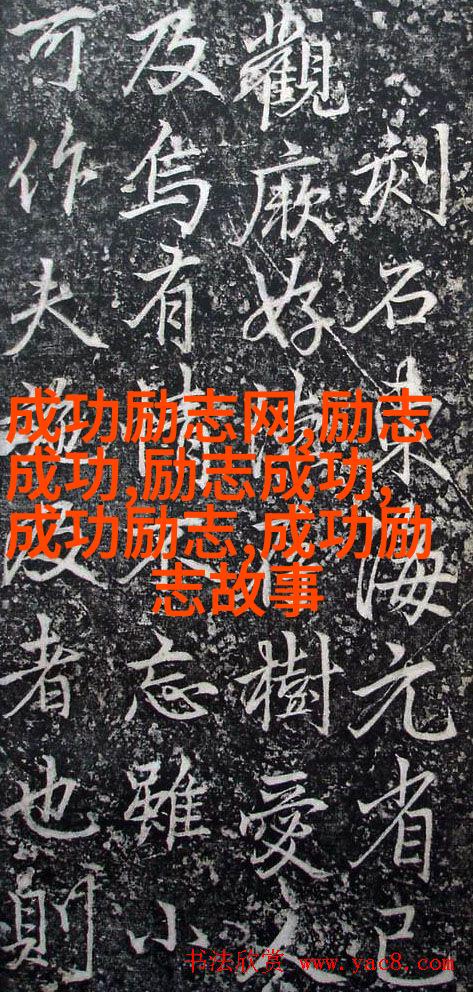 刻石東海元省已
觀厥好樹愛
及焉有忘雖小
可作夫及者也則
成功励志网,励志
成功,励志成功,
成功励志,成功励
志故事
书法欣赏 www.yac8.com